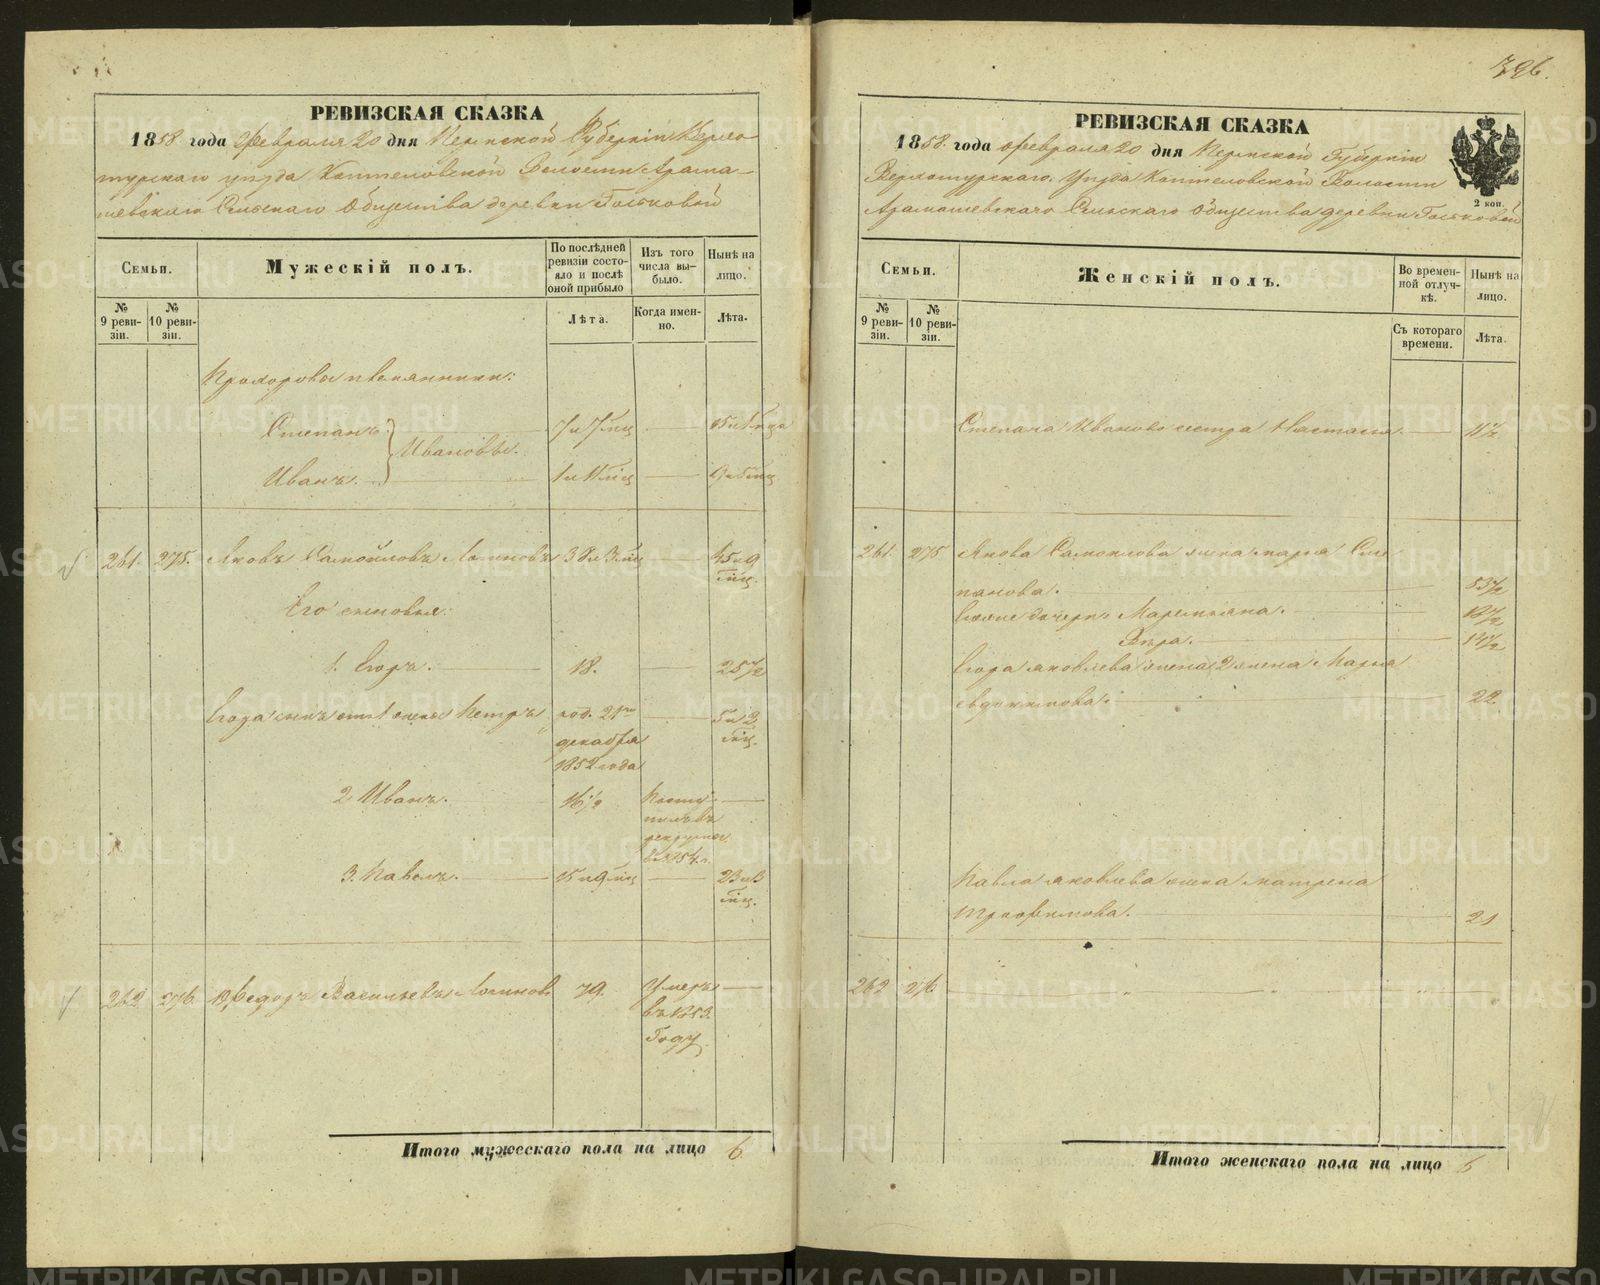 РЕВИЗСКАЯ СКАЗКА
1858 года Февраля 20 дня Пермской Губерніи Верхо-
турскаго уѣзда Коптеловской Волости Арама-
шевскаго Сельскаго Общества деревни Гольковой
Семьи.
Мужескій полъ.
По послѣдней ревизіи состояло и послѣ оной прибыло
Изъ того числа выбыло.
Нынѣ на лицо.
№ 9 ревизіи.
№ 10 ревизіи.
Лѣта.
Когда именно.
Лѣта.
племянники:
Степанъ
Ивановы.
7 и 7 мц
Иванъ.
1 и 11 мц
261. 275. Яковъ Самойловъ Логиновъ 38 и 3 мц 45 и 9 мц.
Его сыновья:
1. Егоръ. 18. 25 1/2
Егора сынъ отъ 1 жены Петръ род. 21го 5 и 2 мц.
декабря
1852 года
2 Иванъ. 16 1/2
рекруты
въ 1854 г.
3. Павелъ. 15 и 9 мц 23 и 3 мц.
262 276. Федоръ Васильевъ Логиновъ 79. Умеръ
въ 1853
Году
Итого мужескаго пола на лицо 6.
396.
РЕВИЗСКАЯ СКАЗКА
1858 года Февраля 20 дня Пермской Губерніи
Верхотурскаго Уѣзда Коптеловской Волости
Арамашевскаго Сельскаго Общества деревни Гольковой
2 коп.
Семьи.
Женскій полъ.
Во временной отлучкѣ.
Нынѣ на лицо.
№ 9 ревизіи.
№ 10 ревизіи.
Съ котораго времени.
Лѣта.
Степана Иванова сестра Настасья. 11 1/2
261. 275 Якова Самойлова жена Марья Сте
панова. 53 1/2
дочери: Маремьяна.
Вѣра. 14 1/2
Егора Яковлева жена 2 жена Марья
Евдокимова: 22.
Павла Яковлева жена Матрена
Трофимова. 21
262 276.
Итого женскаго пола на лицо 6
METRIKI.GASO-URAL.RU